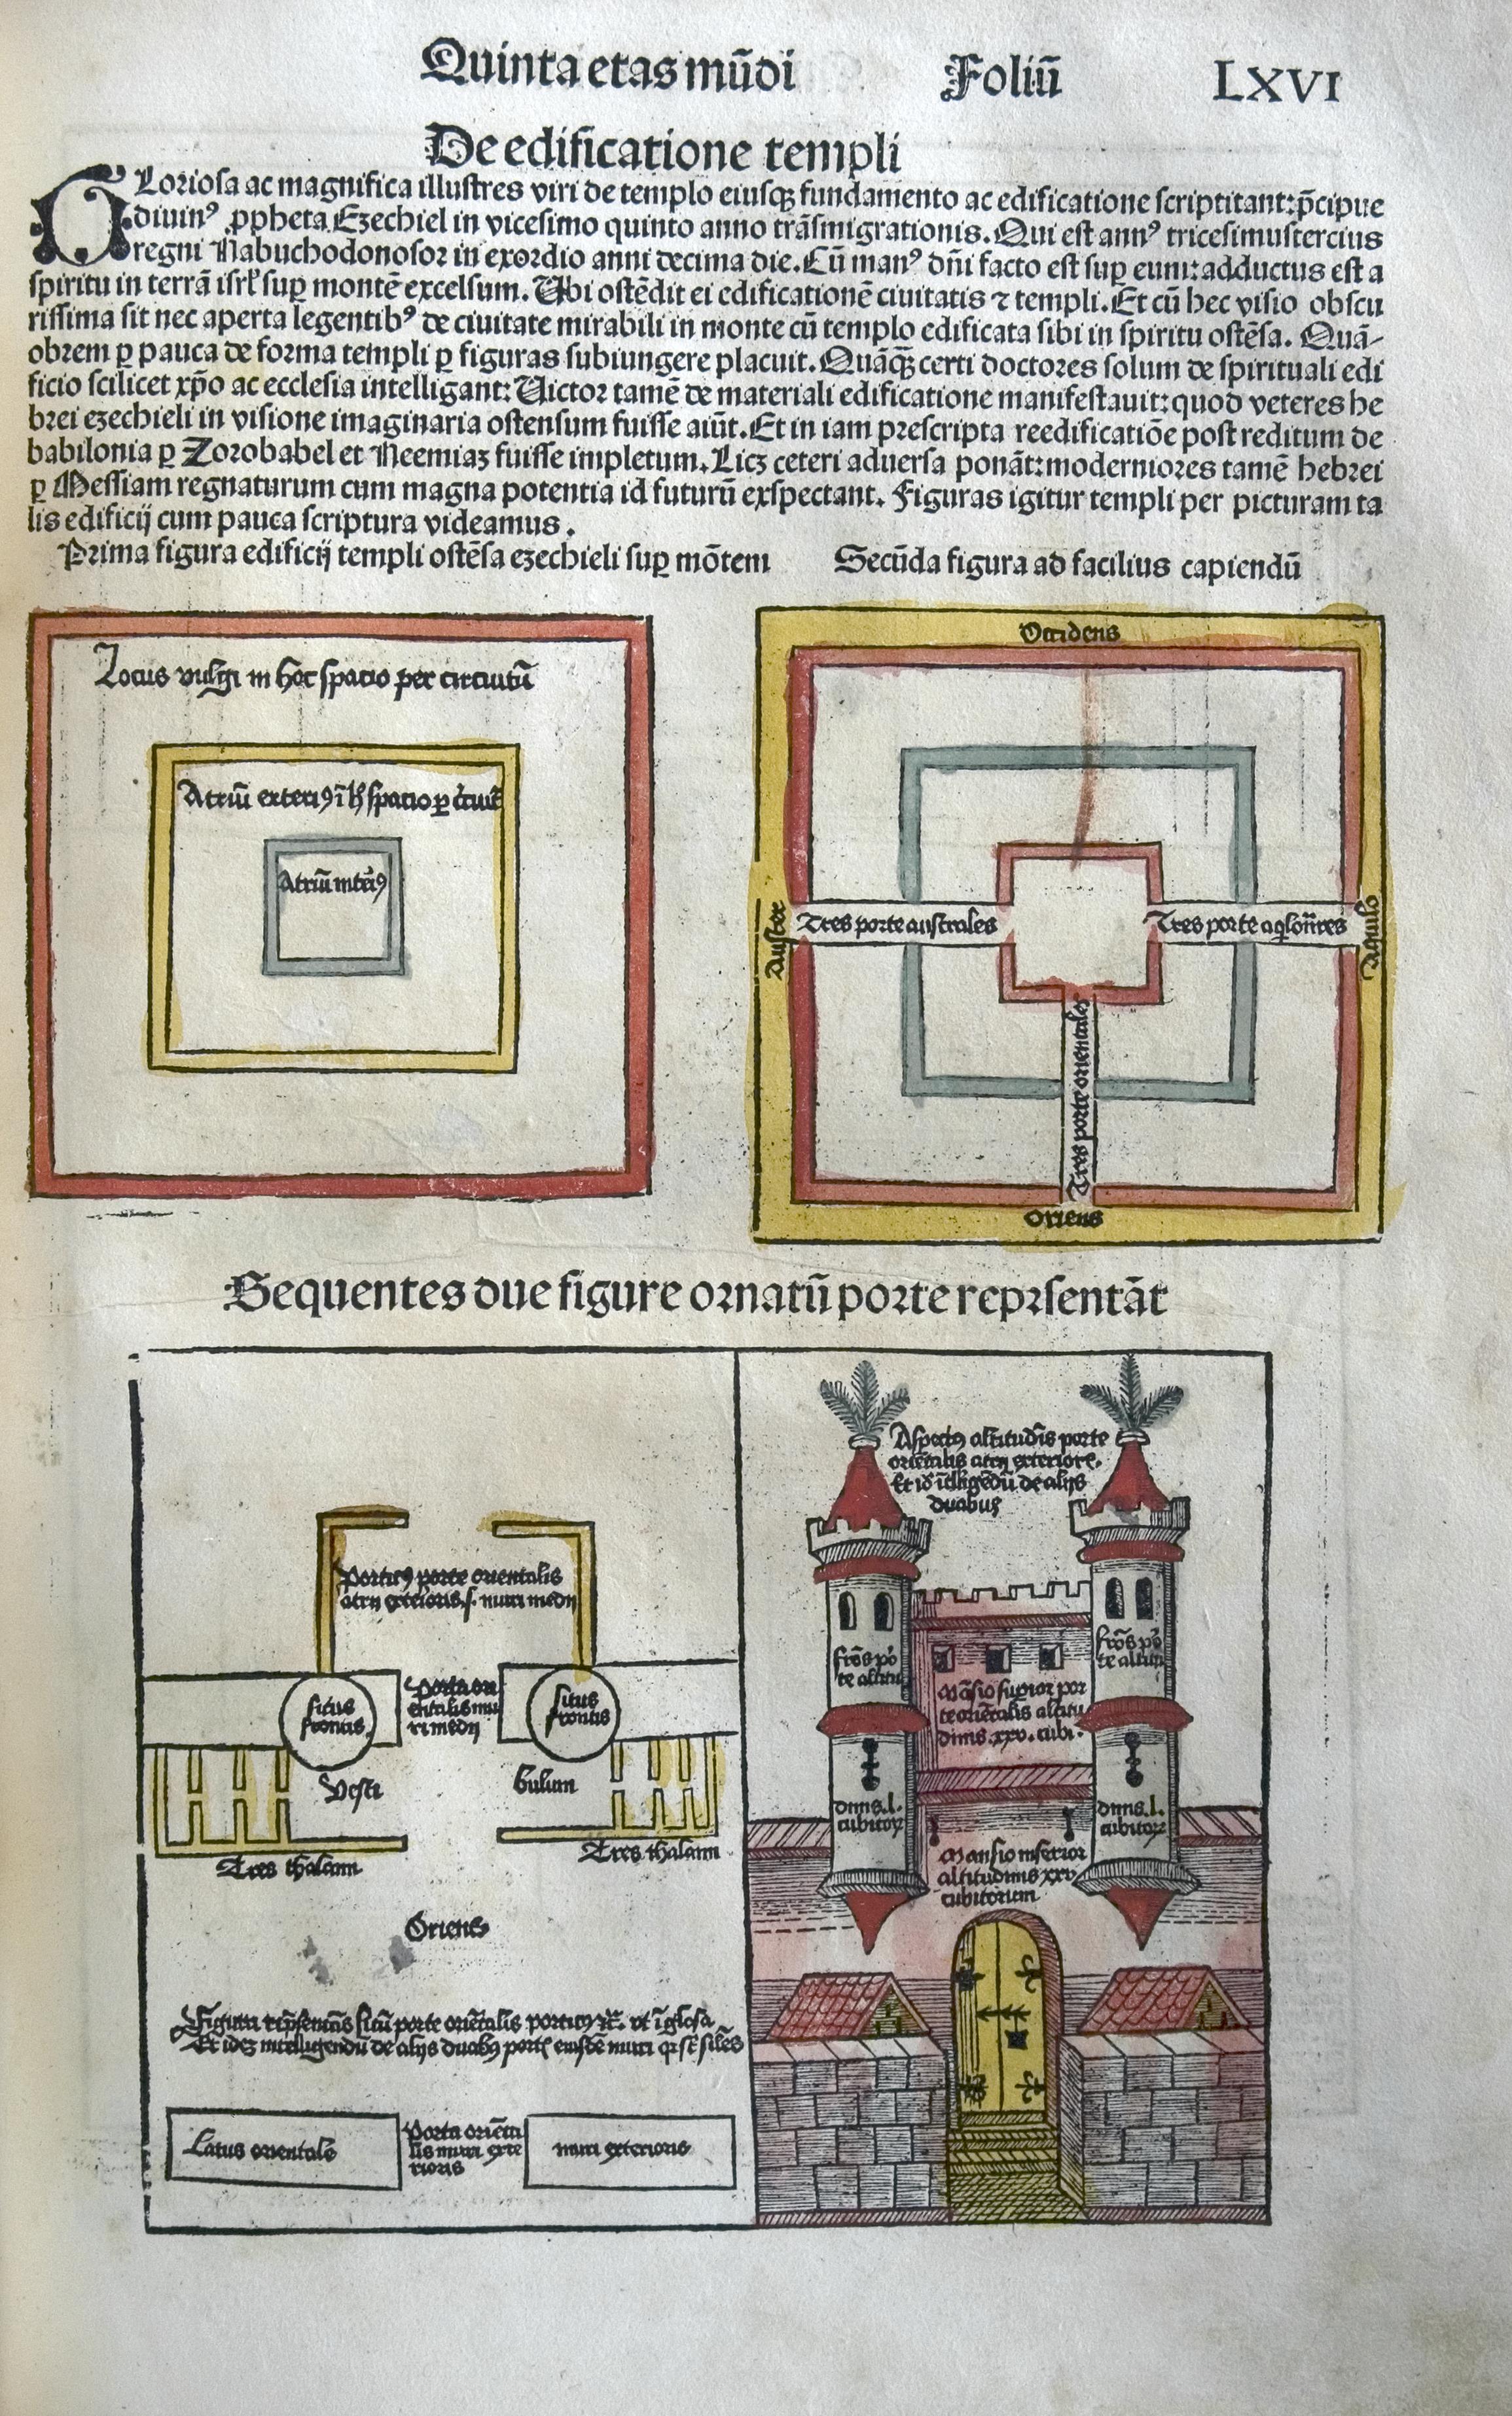 Quinta etas mũdi Foliũ LXVI
De edificatione templi
GLoriosa ac magnifica illustres viri de templo eiusqꝫ fundamento ac edificatione scriptitant:p̃cipue
diuinꝰ ꝓpheta Ezechiel in vicesimo quinto anno trãsmigrationis. Qui est annꝰ tricesimustercius
regni Nabuchodonosor in exordio anni decima die. Cũ manꝰ dñi facto est suꝑ eum:adductus est a
spiritu in terrã isrł suꝑ montẽ excelsum. Ubi ostẽdit ei edificationẽ ciuitatis ⁊ templi. Et cũ hec visio obscu
rissima sit nec aperta legentibꝰ de ciuitate mirabili in monte cũ templo edificata sibi in spiritu ostẽsa. Quã-
obrem ꝑ pauca de forma templi ꝑ figuras subiungere placuit. Quãqꝫ̃ certi doctores solum de spirituali edi
ficio scilicet xp̃o ac ecclesia intelligant: Uictor tamẽ de materiali edificatione manifestauit:quod veteres he
brei ezechieli in visione imaginaria ostensum fuisse aiũt. Et in iam prescripta reedificatiõe post reditum de
babilonia ꝑ Zorobabel et Neemiaꝫ fuisse impletum. Licꝫ ceteri aduersa ponãt:moderniores tamẽ hebrei
ꝑ Messiam regnaturum cum magna potentia id futurũ exspectant. Figuras igitur templi per picturam ta
lis edificij cum pauca scriptura videamus.
Prima figura edificij templi ostẽsa ezechieli suꝑ mõtem
Secũda figura ad facilius capiendũ
Locus vulgi in hoc spacio per circuitũ
Atriũ exteriꝰ ĩ h̾ spatio ꝑ c̃cuitũ
Atriũ int̾iꝰ
Occidens
Auster
Tres porte australes
Tres porte aq̃lonr̃es
Aquilo
Tres porte orientales
Oriens
Sequentes due figure ornatũ porte reprsentãt
Porticꝰ porte orientalis
atrij exterioris .s. muri medij
situs
frontis
Porta ori
entalis mu
ri medij
situs
frontis
Vesti
bulum
Tres thalami
Tres thalami
Oriens
Figura rep̃sentãs sitũ porte oriẽtalis porticꝰ ⁊c̃. vt ĩ glosa
Et ideꝫ intelligendũ de alijs duabꝰ port̾ eiusdẽ muri q̃ sẽ silẽs
Latus orientale
Porta oriẽta
lis muri exte
rioris
muri exterioris
Aspectꝰ altitudĩs porte
oriẽtalis atrij exteriore.
Et id̾ ĩtelligẽdũ de alijs
duabus
frõs por
te altitu
frõs por
te altitu
Mãsio suꝑior por
te oriẽtalis altitu
dinis .xxv. cubi.
dinis .l.
cubitoꝝ
dinis .l.
cubitoꝝ
Mansio inferior
altitudinis xxv
cubitorum